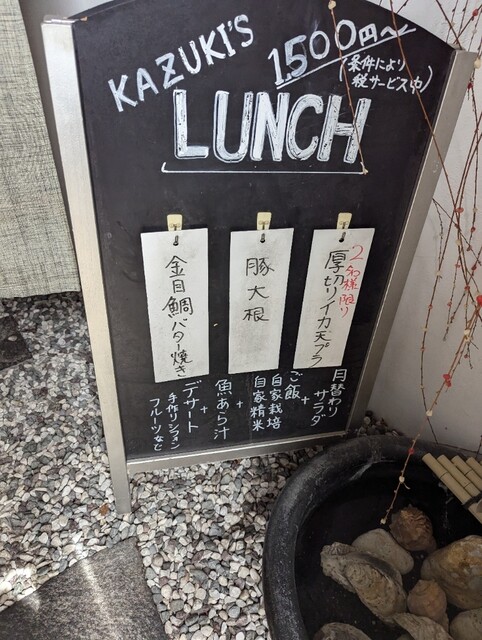 KAZUKI'S
1,500円〜
(条件により
税サービス中)
LUNCH
2名様限り
厚切りイカ天プラ
豚大根
金目鯛バター焼き
月替わり
サラダ
+
ご飯
自家栽培
自家精米
+
魚あら汁
+
デザート
手作りシフォン
フルーツなど